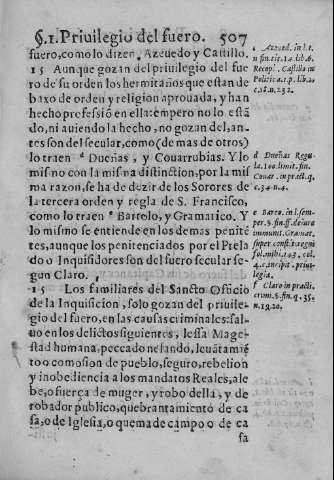 §.1. Priuilegio del fuero. 507
fuero, como lo dizen, Azeuedo y Castillo.
15 Aunque gozan del priuilegio del fue
ro de su orden los hermitaños que estan de
baxo de orden y religion aprouada, y han
hecho professiõ en ella: empero no lo està
do, ni auiendo la hecho, no gozan del, an-
tes son del secular, como (de mas de otros)
lo traen d Dueñas, y Couarrubias. Y lo
mismo con la misma distinction, por la mis
ma razon, se ha de dezir de los Sorores de
la tercera orden y regla de S. Francisco,
como lo traen e Bartolo, y Gramatico. Y
lo mismo se entiende en los demas penitē
tes, aunque los penitenciados por el Prela
do o Inquisidores son del fuero secular se-
gun Claro. f
15 Los familiares del Sancto Officio
de la Inquisicion, solo gozan del priuile-
gio del fuero, en las causas criminales: sal-
uo en los delictos siguientes, lessa Mage-
stad humana, peccado nefando, leuãtamiē
to o comosion de pueblo, seguro, rebelion
y inobediencia a los mandatos Reales, ale
be, o fuerça de muger, y robo della, y de
robador publico, quebrantamiento de ca
sa, o de Iglesia, o quema de campo o de ca
sa
c Azeued. in l. 1.
n fin. tit. 14. lib. 6.
Recopl. Castillo in
Politica. 1. p. lib. 2.
c. 18. n. 232.
d Dueñas Regu-
la. 100. limit. fin.
Couar. in pract. q.
c. 34. n. 4.
e Barto. in l. sem-
per. §. fin. ff. de iure
immunit. Gramat.
super const. regni
sol. mihi. 103. col.
4. c. incipit. priui-
legia.
f Claro in practi.
crim. §. fin. q. 35.
n. 19. 20.